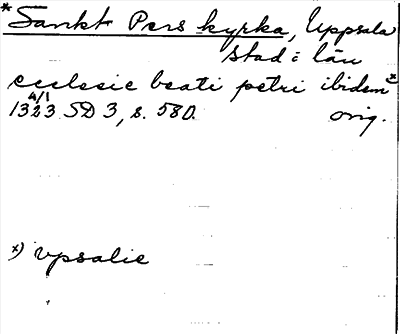 * Sankt Pers kyrka, Uppsala
stad o. län
ecclesie beati petri ibidem x)
4/1
1323 SD 3, s. 580. orig.
x) Vpsalie